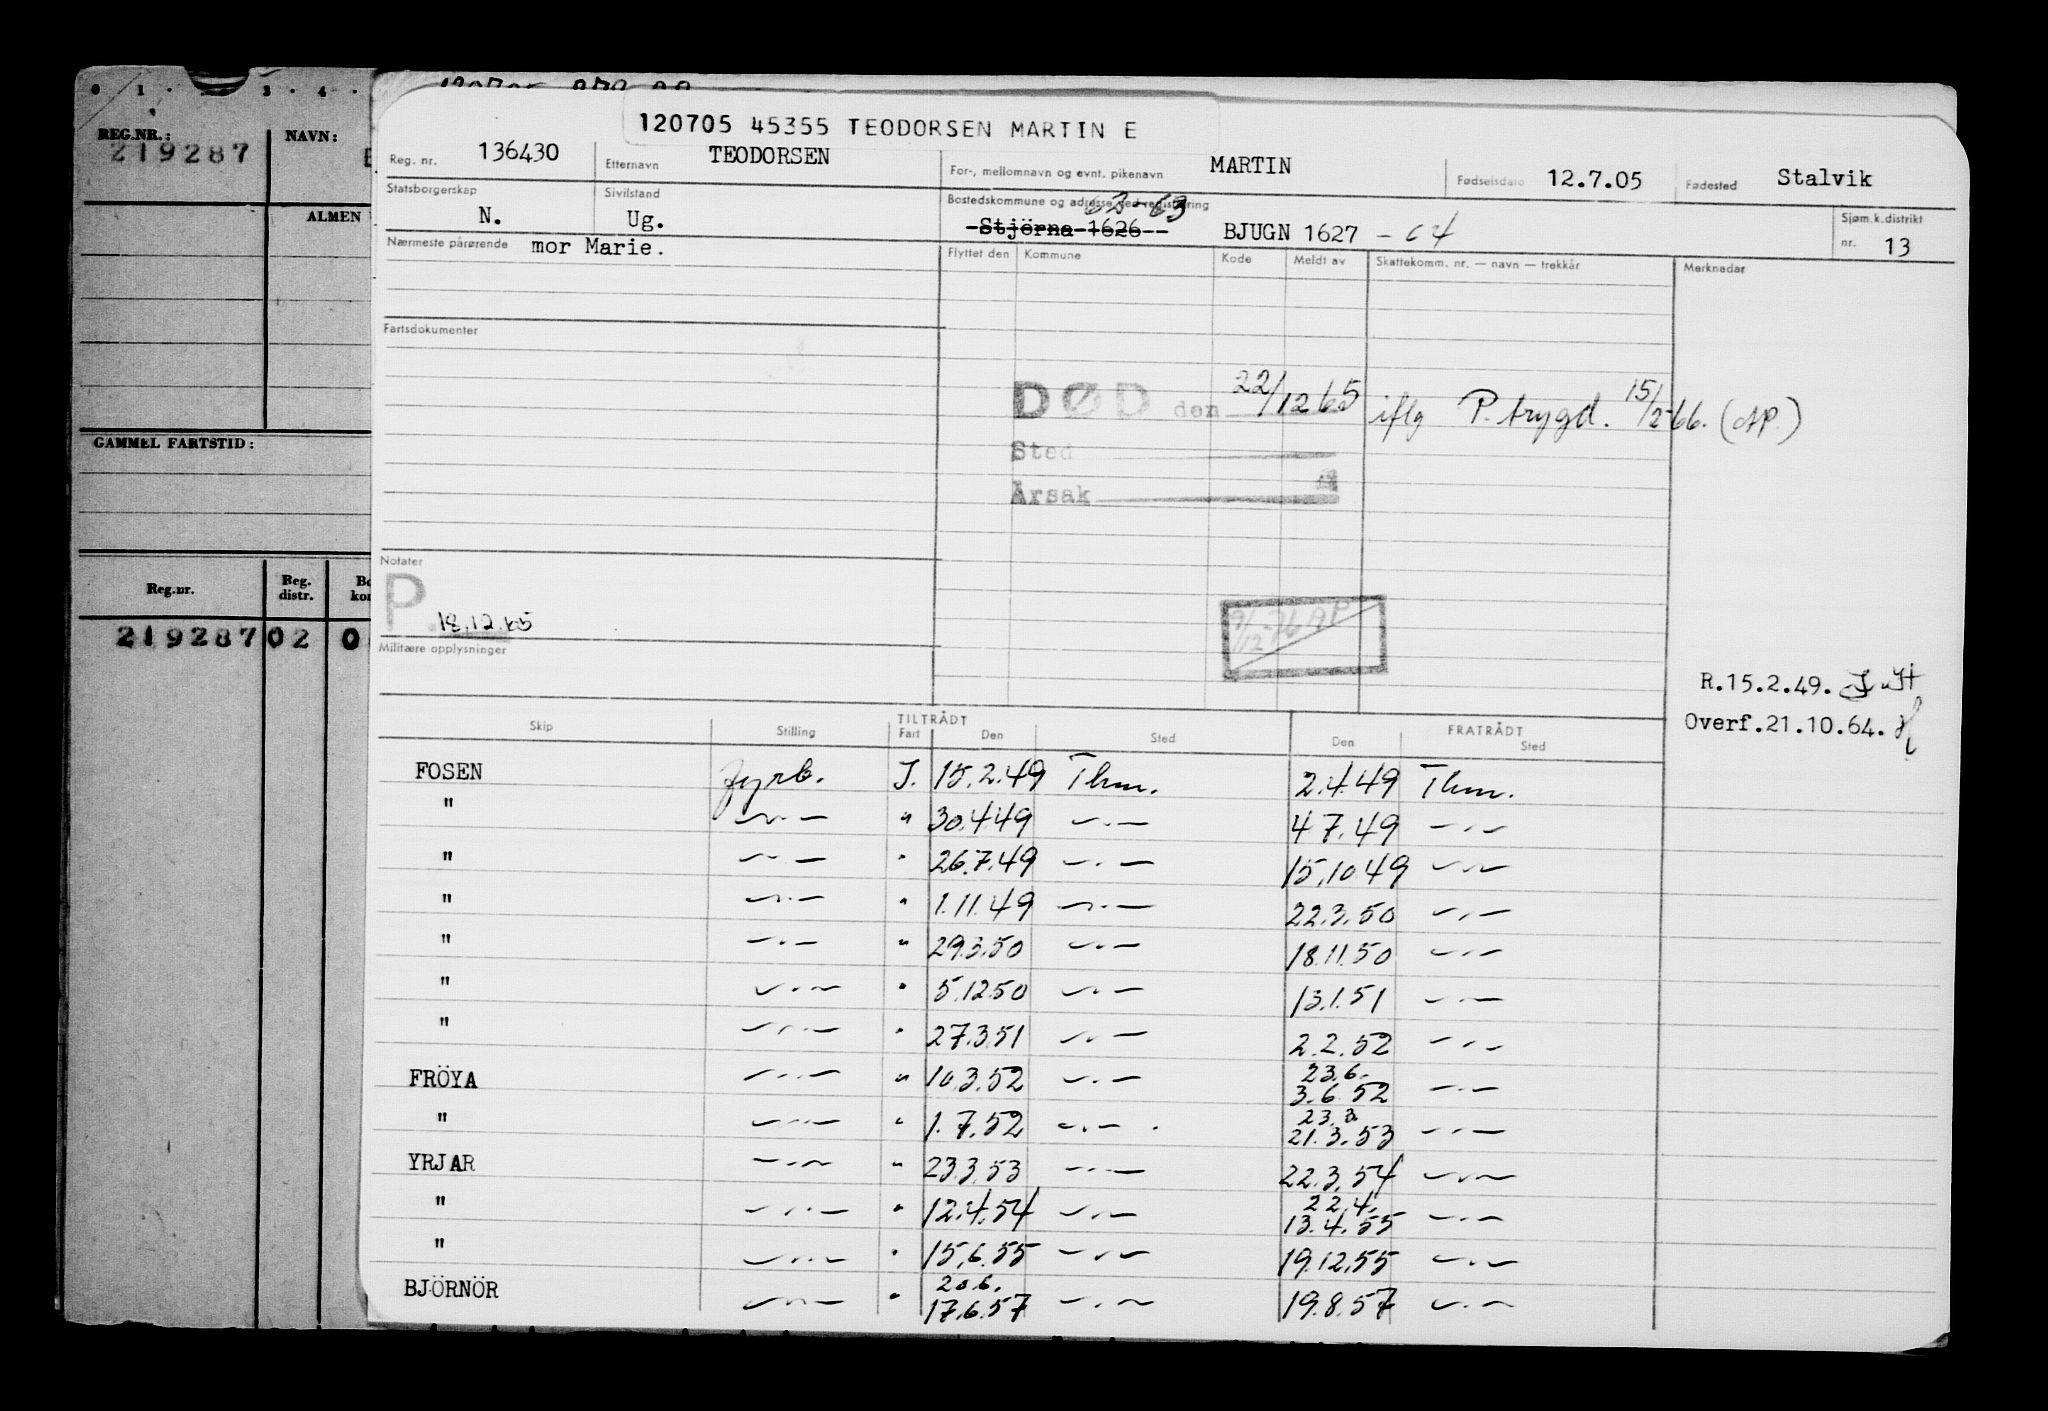 0 1 · · 3 · 4 ·
REG.NR.: NAVN:
219287
ALMEN
GAMMEL FARTSTID:
Reg.nr. Reg. distr.
219287 02 0
120705 45355 TEODORSEN MARTIN E
Reg. nr. 136430 Etternavn TEODORSEN For-, mellomnavn og evnt. pikenavn MARTIN Fødselsdato 12.7.05 Fødested Stalvik
Statsborgerskap N. Sivilstand Ug. Bostedskommune og adresse ved registrering 63-63
Stjörna 1626 BJUGN 1627 -64 Sjøm.k.distrikt nr. 13
Nærmeste pårørende mor Marie.
Flyttet den Kommune Kode Meldt av Skattekomm. nr. — navn — trekkår Merknader
Fartsdokumenter
DØD den 22/12 65 iflg P. trygd. 15/2-66. (AP.)
Sted
Årsak
Notater
P. 18.12.65
9/12-76 AP
Militære opplysninger
R.15.2.49.
Overf.21.10.64.
Skip Stilling TILTRÅDT Fart Den Sted FRATRÅDT Den Sted
FOSEN fyrb. J. 15.2.49 Thm. 2.4.49 Thm.
" —"— " 30.4.49 —"— 4.7.49 —"—
" —"— " 26.7.49 —"— 15.10.49 —"—
" —"— " 1.11.49 —"— 22.3.50 —"—
" —"— " 29.3.50 —"— 18.11.50 —"—
" —"— " 5.12.50 —"— 13.1.51 —"—
" —"— " 27.3.51 —"— 2.2.52 —"—
FRÖYA —"— " 10.3.52 —"— 23.6. 3.6.52 —"—
" —"— " 1.7.52 —"— 23.3. 21.3.53 —"—
YRJAR —"— " 23.3.53 —"— 22.3.54 —"—
" —"— " 12.4.54 —"— 22.4. 13.4.55 —"—
" —"— " 15.6.55 —"— 19.12.55 —"—
BJÖRNÖR —"— " 20.6. 17.6.57 —"— 19.8.57 —"—